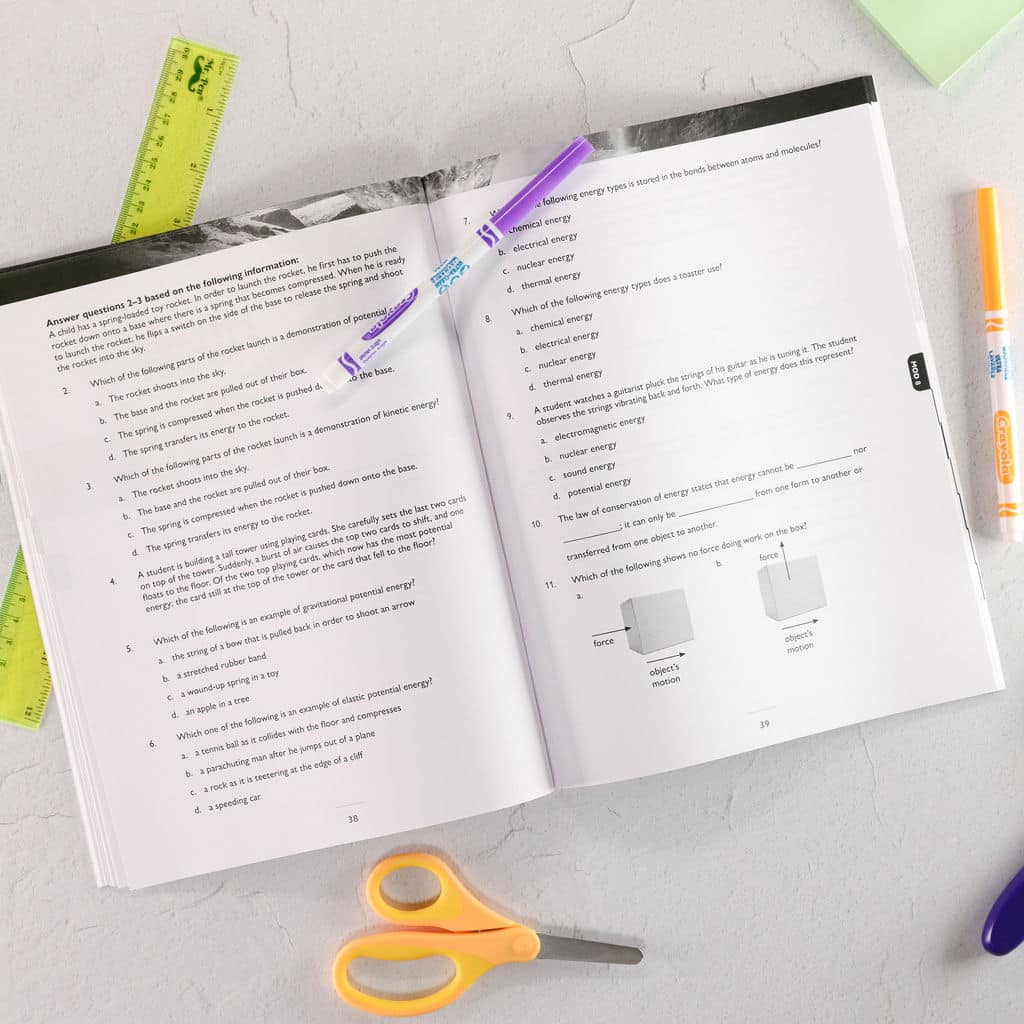 Answer questions 2–3 based on the following information:
A child has a spring-loaded toy rocket. In order to launch the rocket, he first has to push the
rocket down onto a base where there is a spring that becomes compressed. When he is ready
to launch the rocket, he flips a switch on the side of the base to release the spring and shoot
the rocket into the sky.
2. Which of the following parts of the rocket launch is a demonstration of potential
a. The rocket shoots into the sky.
b. The base and the rocket are pulled out of their box.
c. The spring is compressed when the rocket is pushed the base.
d. The spring transfers its energy to the rocket.
3. Which of the following parts of the rocket launch is a demonstration of kinetic energy?
a. The rocket shoots into the sky.
b. The base and the rocket are pulled out of their box.
c. The spring is compressed when the rocket is pushed down onto the base.
d. The spring transfers its energy to the rocket.
4. A student is building a tall tower using playing cards. She carefully sets the last two cards
on top of the tower. Suddenly, a burst of air causes the top two cards to shift, and one
floats to the floor. Of the two top playing cards, which now has the most potential
energy: the card still at the top of the tower or the card that fell to the floor?
5. Which of the following is an example of gravitational potential energy?
a. the string of a bow that is pulled back in order to shoot an arrow
b. a stretched rubber band
c. a wound-up spring in a toy
d. an apple in a tree
6. Which one of the following is an example of elastic potential energy?
a. a tennis ball as it collides with the floor and compresses
b. a parachuting man after he jumps out of a plane
c. a rock as it is teetering at the edge of a cliff
d. a speeding car
38
7. following energy types is stored in the bonds between atoms and molecules?
chemical energy
b. electrical energy
c. nuclear energy
d. thermal energy
8. Which of the following energy types does a toaster use?
a. chemical energy
b. electrical energy
c. nuclear energy
d. thermal energy
9. A student watches a guitarist pluck the strings of his guitar as he is tuning it. The student
observes the strings vibrating back and forth. What type of energy does this represent?
a. electromagnetic energy
b. nuclear energy
c. sound energy
d. potential energy
10. The law of conservation of energy states that energy cannot be __________ nor
__________; it can only be __________ from one form to another or
transferred from one object to another.
11. Which of the following shows no force doing work on the box?
a. b.
force
force
object's
motion
object's
motion
39
MOD 8
Mr. Pen
INCH
Crayola